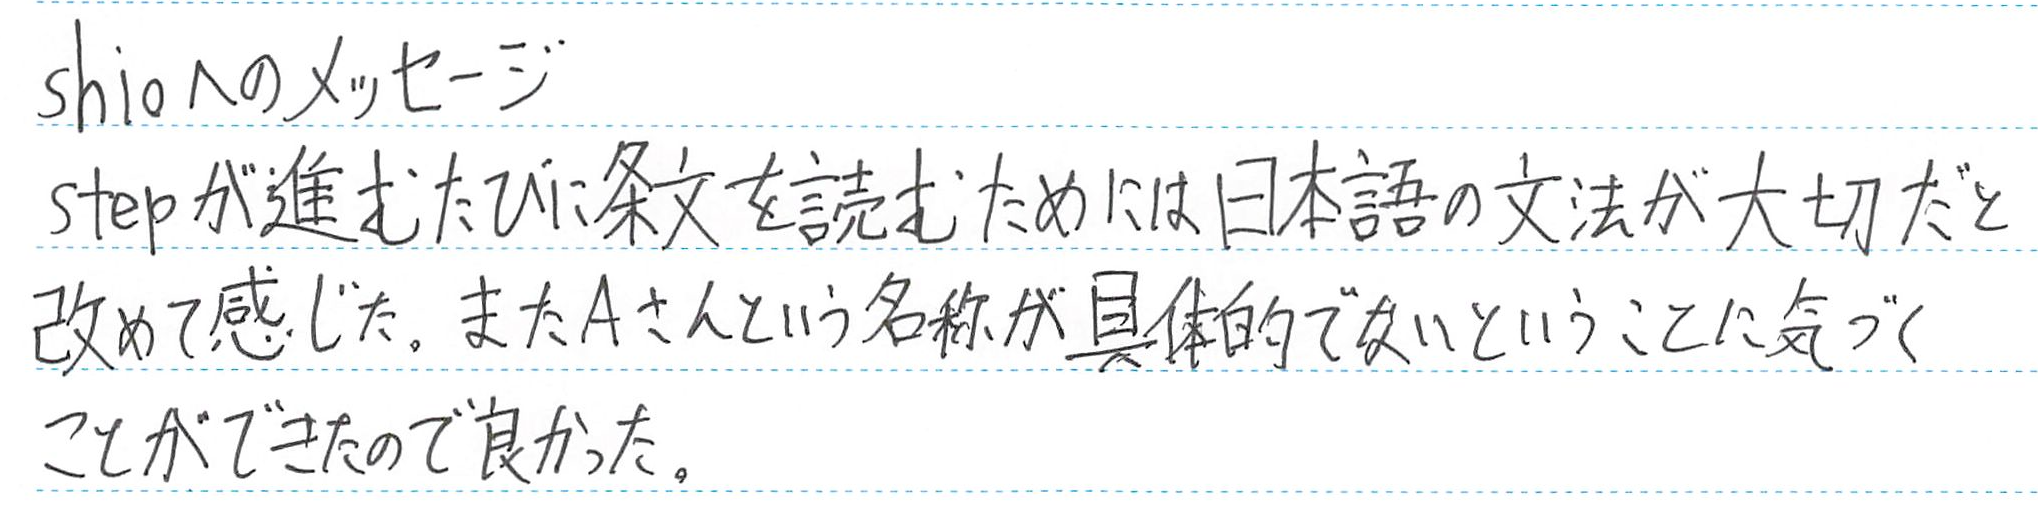 shioへのメッセージ
stepが進むたびに条文を読むためには日本語の文法が大切だと
改めて感じた。またAさんという名称が具体的でないということに気づく
ことができたので良かった。